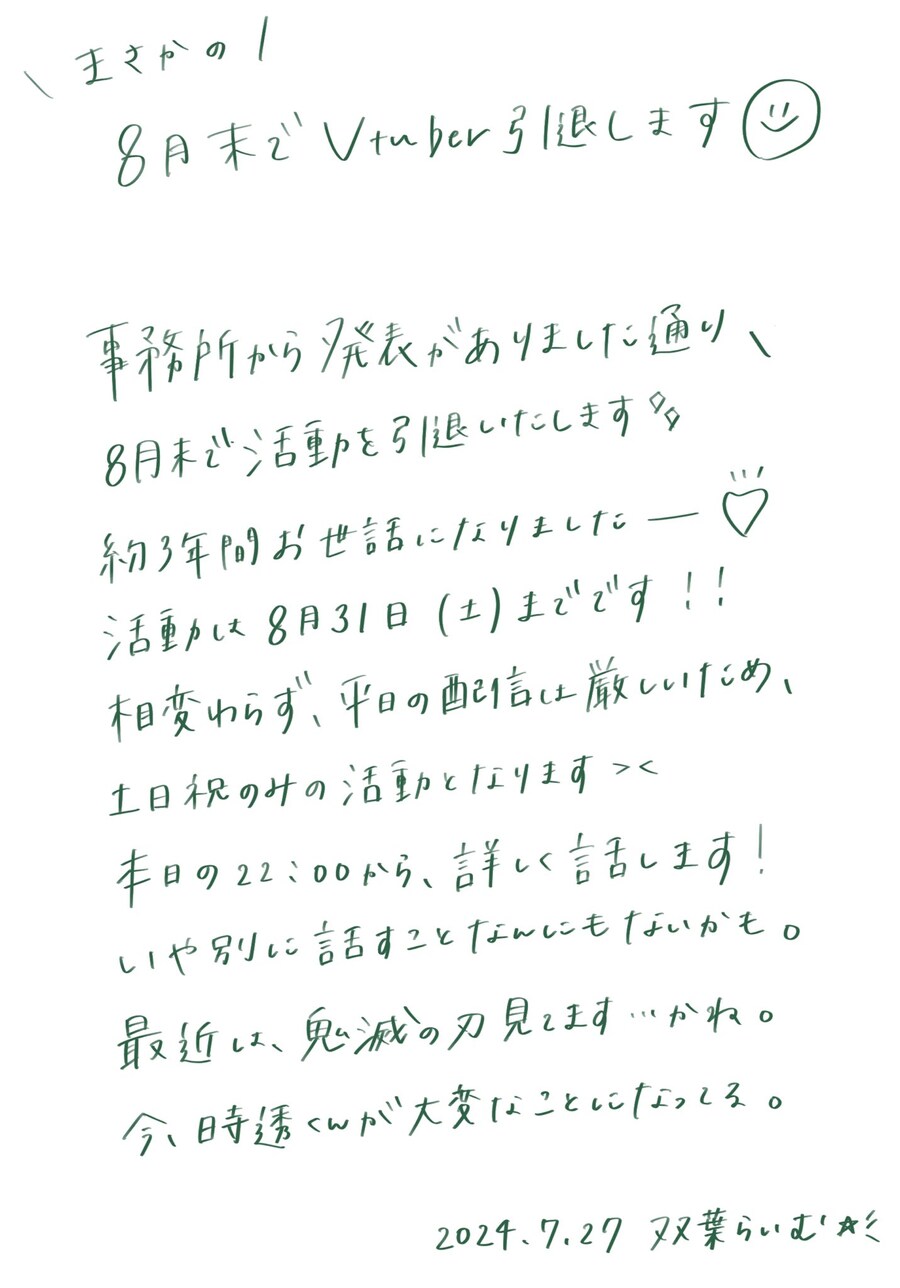 \ まさかの /
8月末でVtuber引退します
事務所から発表がありました通り、
8月末で活動を引退いたします
約3年間お世話になりましたー♡
活動は8月31日(土)までです!!
相変わらず、平日の配信は厳しいため、
土日祝のみの活動となります><
本日の22:00から、詳しく話します!
いや別に話すことなんにもないかも。
最近は、鬼滅の刃見てます…かね。
今、時透くんが大変なことになってる。
2024.7.27 双葉らいむ☆彡